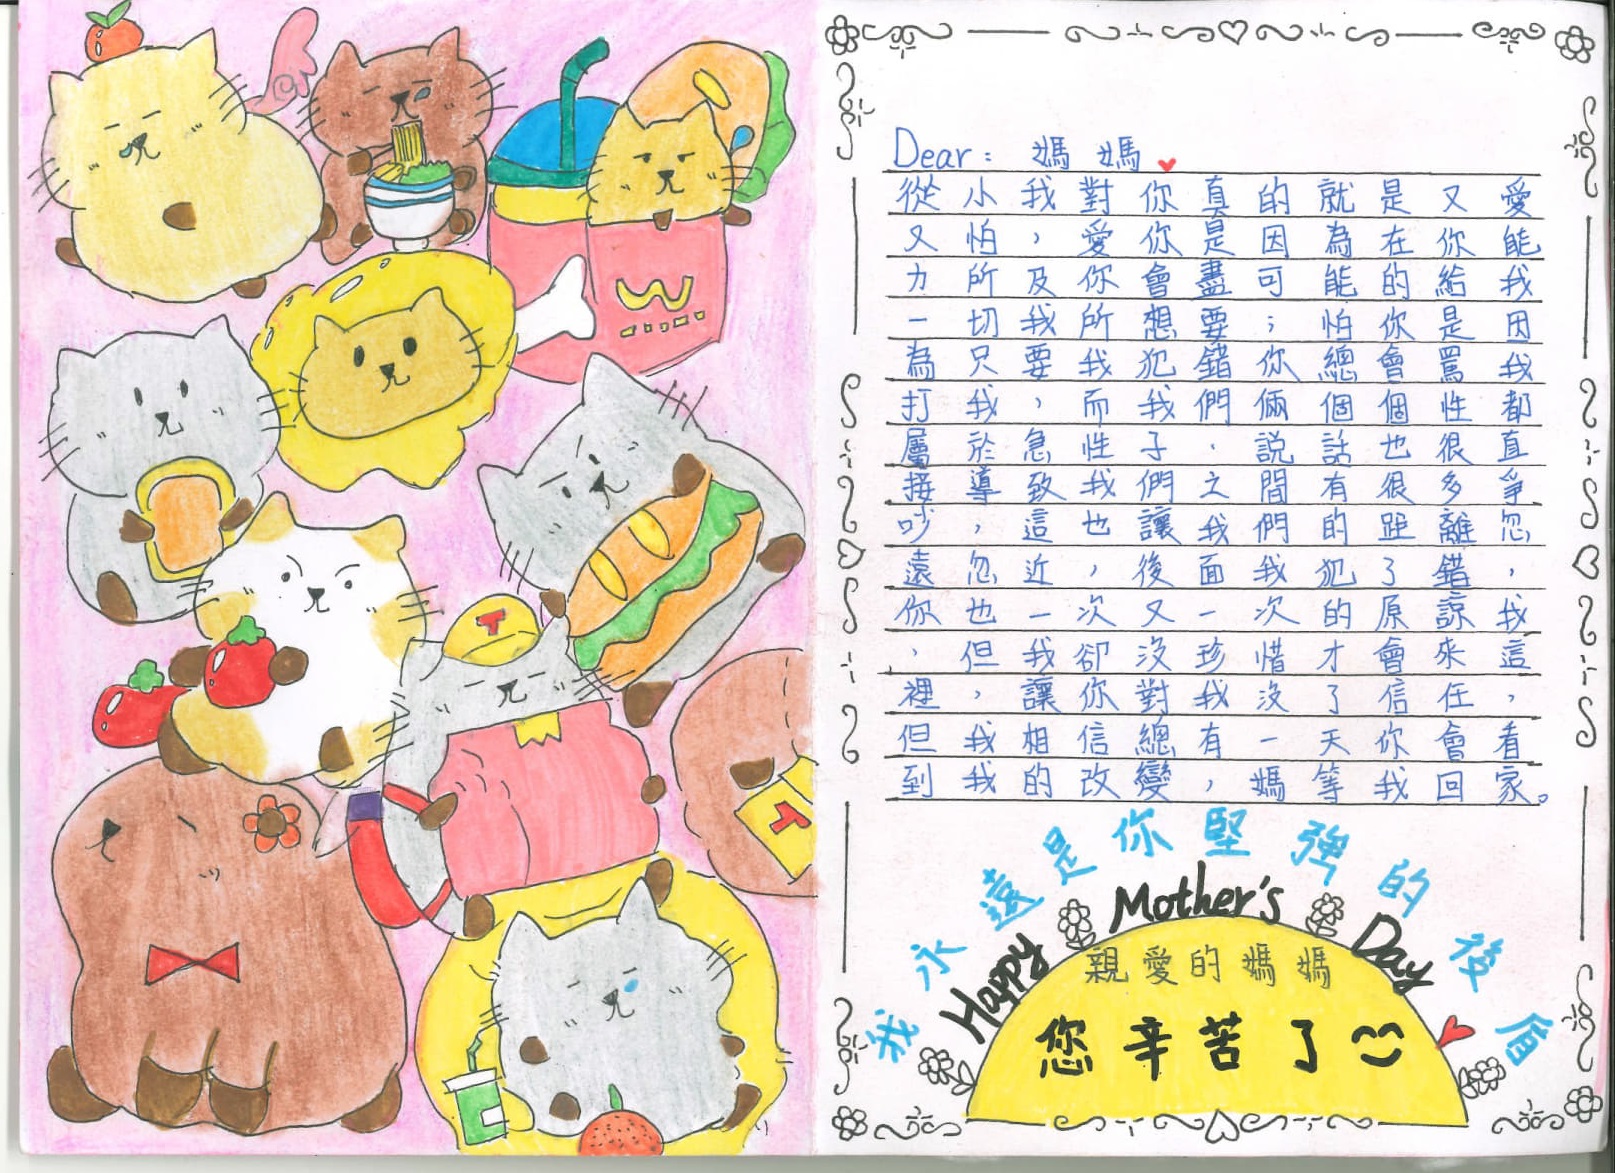 Dear：媽媽
從小我對你真的就是又愛
又怕，愛你是因為在你能
力所及你會盡可能的給我
一切我所想要；怕你是因
為只要我犯錯你總會罵我
打我，而我們倆個個性都
屬於急性子，說話也很直
接導致我們之間有很多爭
吵，這也讓我們的距離忽
遠忽近，後面我犯了錯，
你也一次又一次的原諒我
，但我卻沒珍惜才會來這
裡，讓你對我沒了信任，
但我相信總有一天你會看
到我的改變，媽等我回家。
我永遠是你堅強的後盾
Happy Mother's Day
親愛的媽媽
您辛苦了
T
T